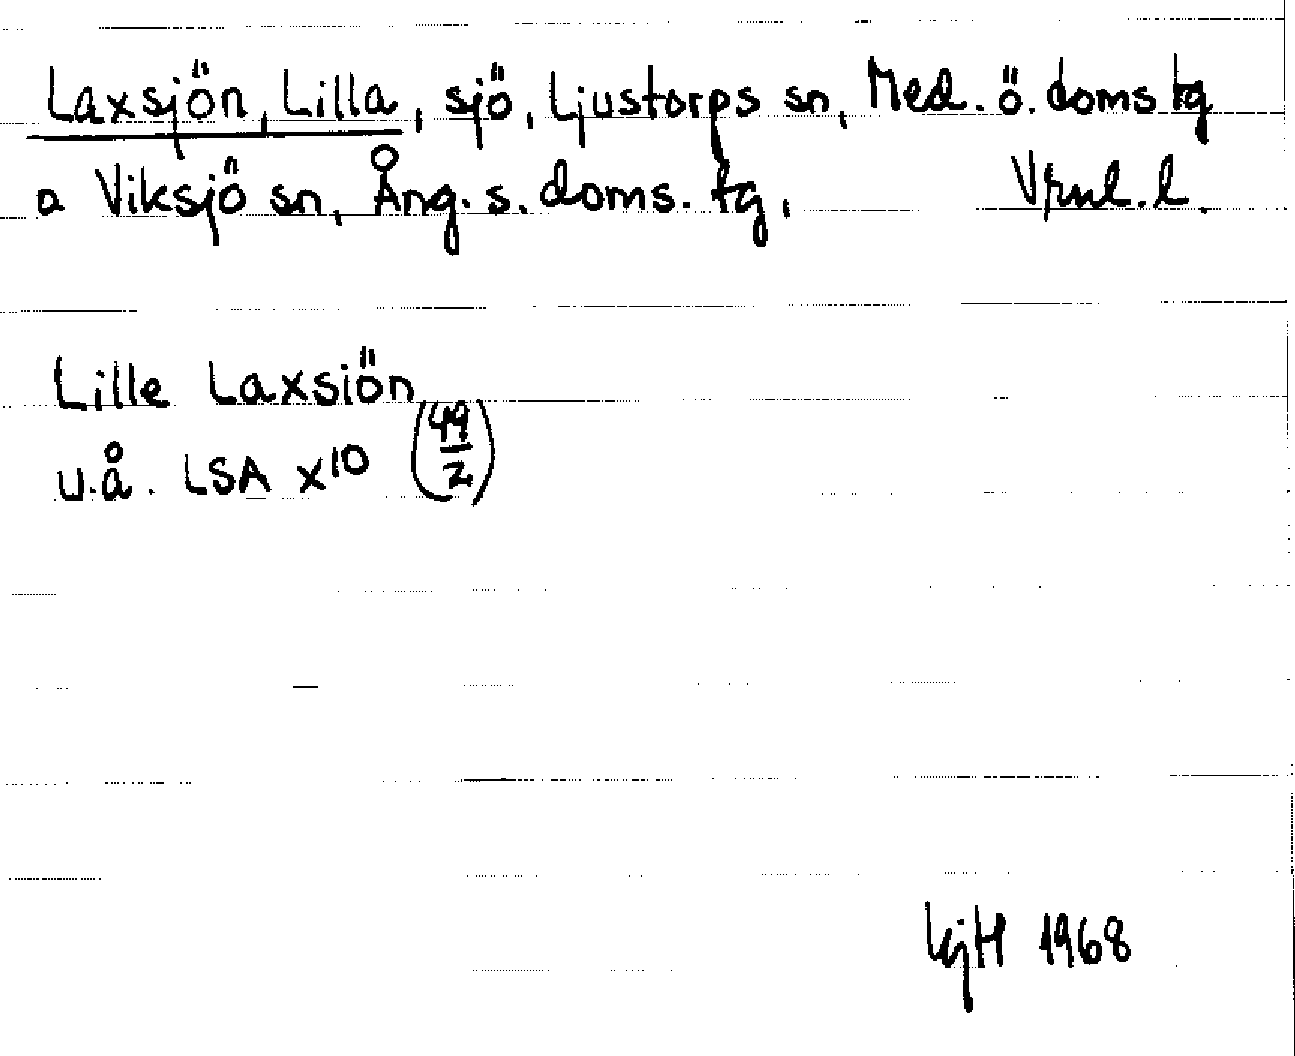 Laxsjön, Lilla, sjö, Ljustorps sn, Med. ö. doms tg
a Viksjö sn, Ång. s. doms. tg, Vrnl. l.
Lille Laxsiön
u.å. LSA x10 (49/2)
KjH 1968